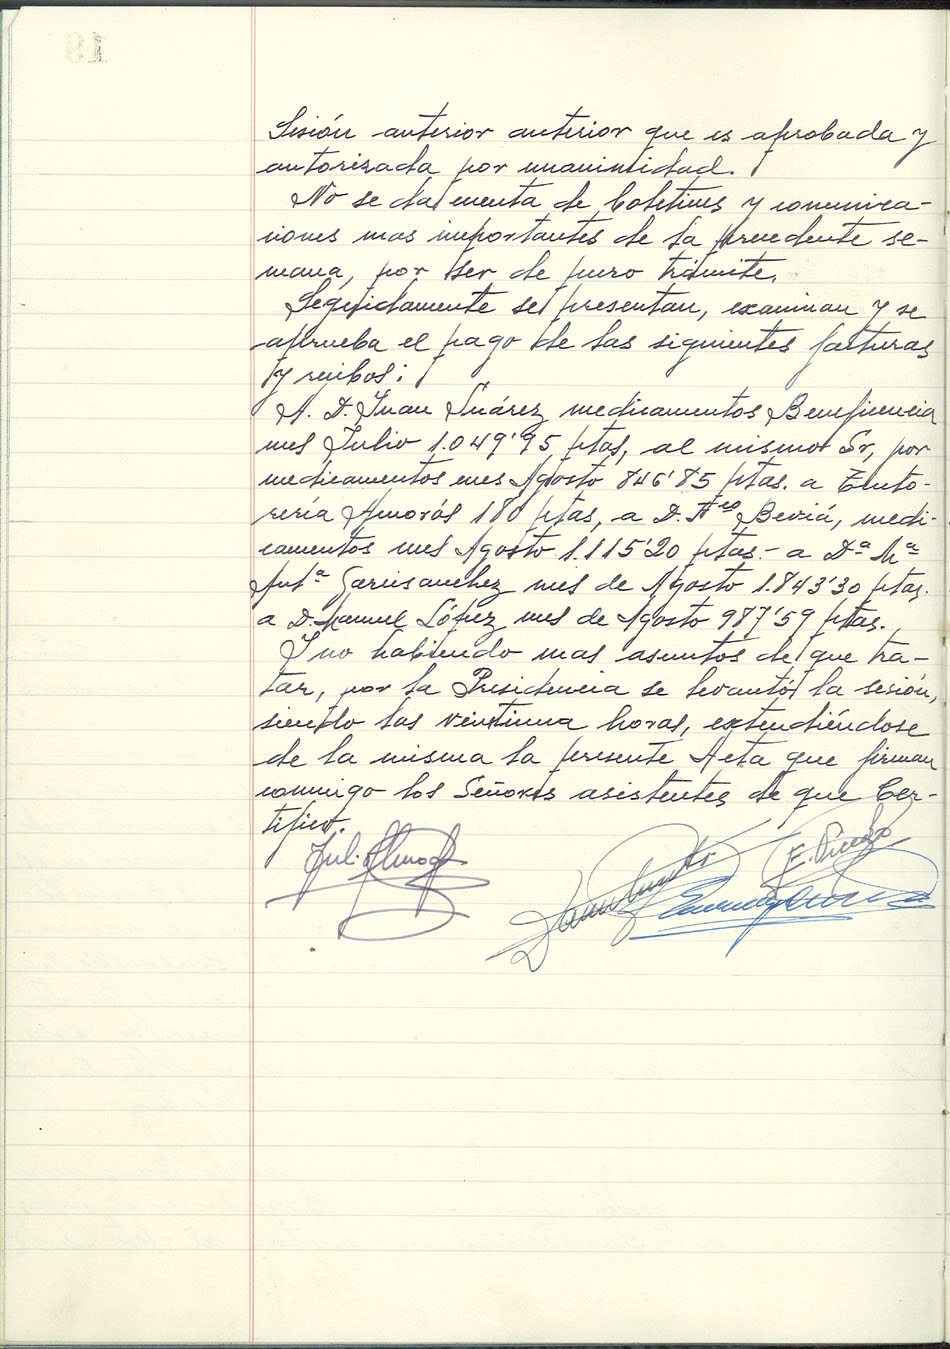 Sesión anterior anterior que es aprobada y
autorizada por unanimidad.
No se da cuenta de boletines y comunica-
ciones mas importantes de la precedente se-
mana, por ser de puro trámite.
Seguidamente se presentan, examinan y se
aprueba el pago de las siguientes facturas
y recibos:
A. D. Juan Suárez medicamentos Beneficencia
mes Julio 1.049'95 ptas, al mismo Sr, por
medicamentos mes Agosto 846'85 ptas. a Tinto-
rería Amorós 180 ptas, a D. Fco Beviá, medi-
camentos mes Agosto 1.115'20 ptas.- a Dª Mª
Antª Garcisanchez mes de Agosto 1.843'30 ptas.
a D. Manuel López mes de Agosto 987'59 ptas.
Y no habiendo mas asuntos de que tra-
tar, por la Presidencia se levantó la sesión,
siendo las veintiuna horas, extendiéndose
de la misma la presente Acta que firman
conmigo los Señores asistentes de que Cer-
tifico.